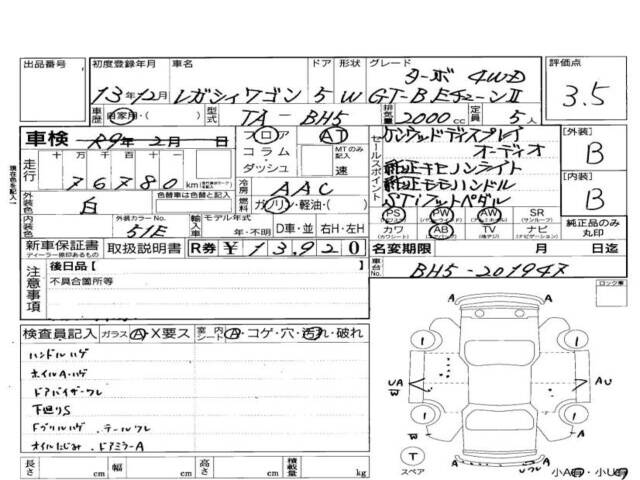 出品番号
初度登録年月 車名 ドア 形状 グレード
評価点
13年12月 レガシィワゴン 5 W ターボ 4WD
GT-B Eチューン II
3.5
車歴 自家用・( ) 型式 TA-BH5 排気量 2000cc 定員 5人
車検 R9年 2月 日
走行 十万 万 千 百 十 一
76780 km
フロア
コラム・
ダッシュ
AT
MTのみ記入
速
冷房 AAC
燃料 ガソリン・軽油・( )
セールスポイント
ケンウッドディスプレイ
オーディオ
純正キセノンライト
純正モモハンドル
STiフットペダル
[外装]
B
[内装]
B
現在色を記入
外装色 白
色替車は色替と記入
内装色
外装カラーNo.
51E
輸入車 モデル年式
年・不明 D車・並 右H・左H
PS PW AW SR
(サンルーフ)
カワ AB TV ナビ
(カワシート) (エアバッグ) (地デジ) (ナビゲーション)
純正品のみ
丸印
新車保証書
ディーラー捺印あるもの
取扱説明書 R券 ¥13,920
名変期限 月 日迄
注意事項
後日品【 】
不具合箇所等
車台No. BH5-201947
ロック車
検査員記入 ガラス A・X要ス 室内シート A・コゲ・穴・汚れ・破れ
ハンドルハゲ
ホイルA・ハゲ
ドアバイザーワレ
下廻りS
Fグリルハゲ、テールワレ
オイルにじみ、ドアミラーA
A A
1 1
UA
W
AU
1 1
W
T
スペア
A A
A ワレ A
小A・小U
長さ cm 幅 cm 高さ cm 積載量 kg